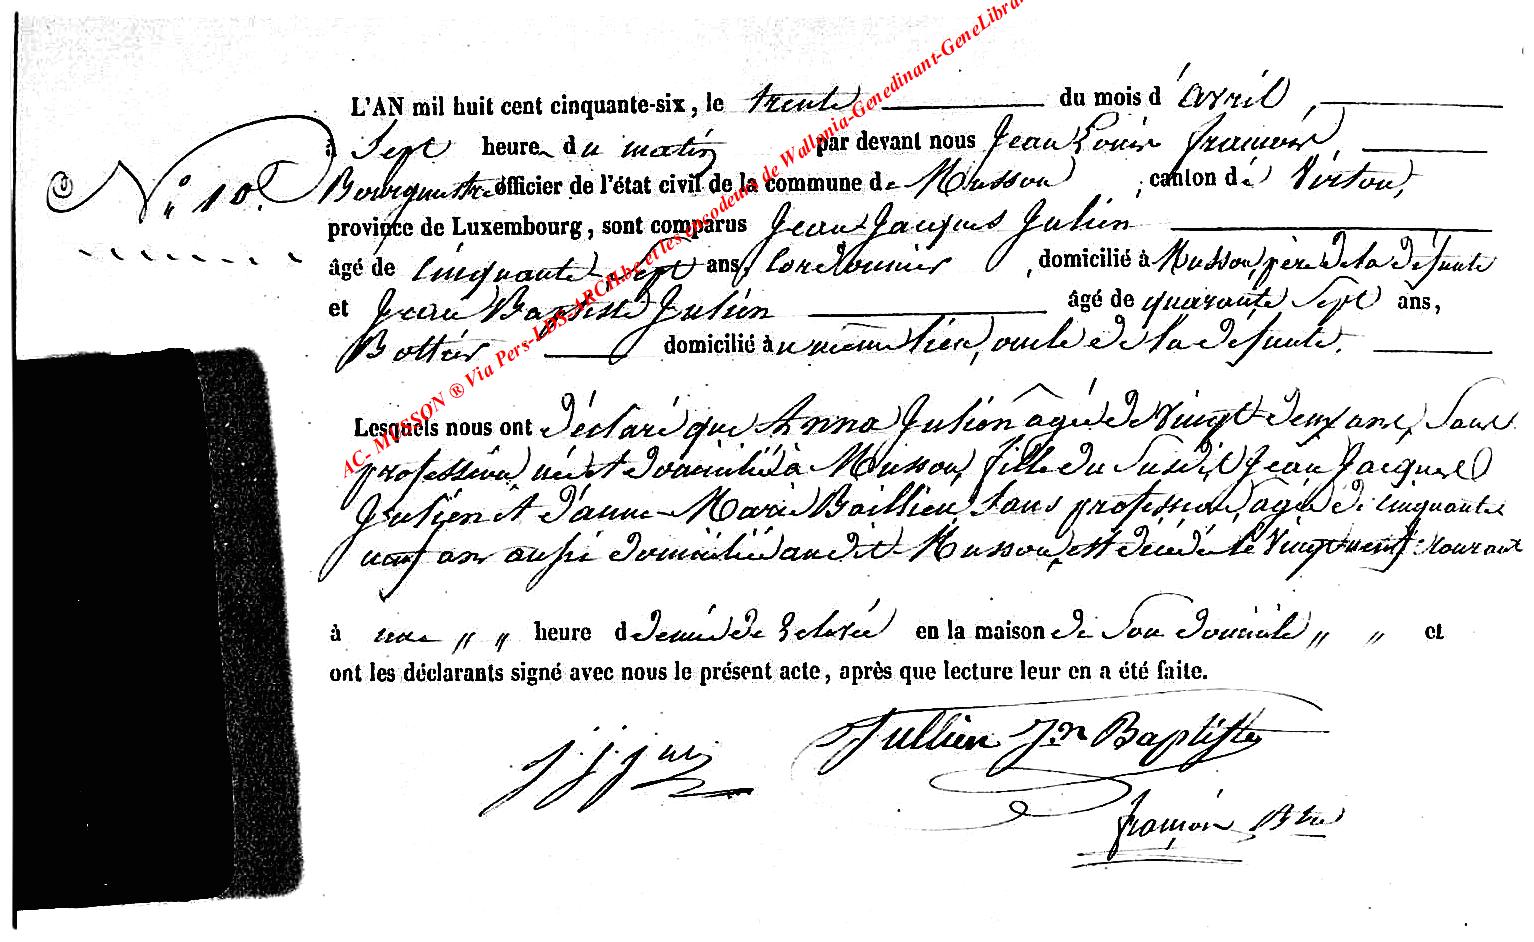 L'AN mil huit cent cinquante-six, le trente du mois d'avril,
à Sept heures du matin par devant nous Jean Louis françois,
N° 10. Bourgmestre officier de l'état civil de la commune de Musson, canton de Virton,
province de Luxembourg, sont comparus Jean Jacques Julien
âgé de Cinquante-sept ans, Cordonnier, domicilié à Musson, père de la défunte
et Jean Baptiste Julien âgé de quarante Sept ans,
Bottier domicilié au même lieu, oncle de la défunte.
Lesquels nous ont déclaré que Anna Julien âgée de Vingt-deux ans, Sans
profession née et domiciliée à Musson, fille du Susdit Jean Jacques
Julien et d'anne-Marie Baillieu Sans profession, agée de cinquante
neuf ans aussi domiciliée audit Musson, est décédée le Vingt-neuf courant
à une " " heure de demie de relevée en la maison de Son domicile " " et
ont les déclarants signé avec nous le présent acte, après que lecture leur en a été faite.
Jullien Jn Baptiste
j j j
françois Btre
AC- MUSSON ® Via Pers-LDS-ARCH.be et les encodeurs de Wallonia-Genedinant-GeneLibra